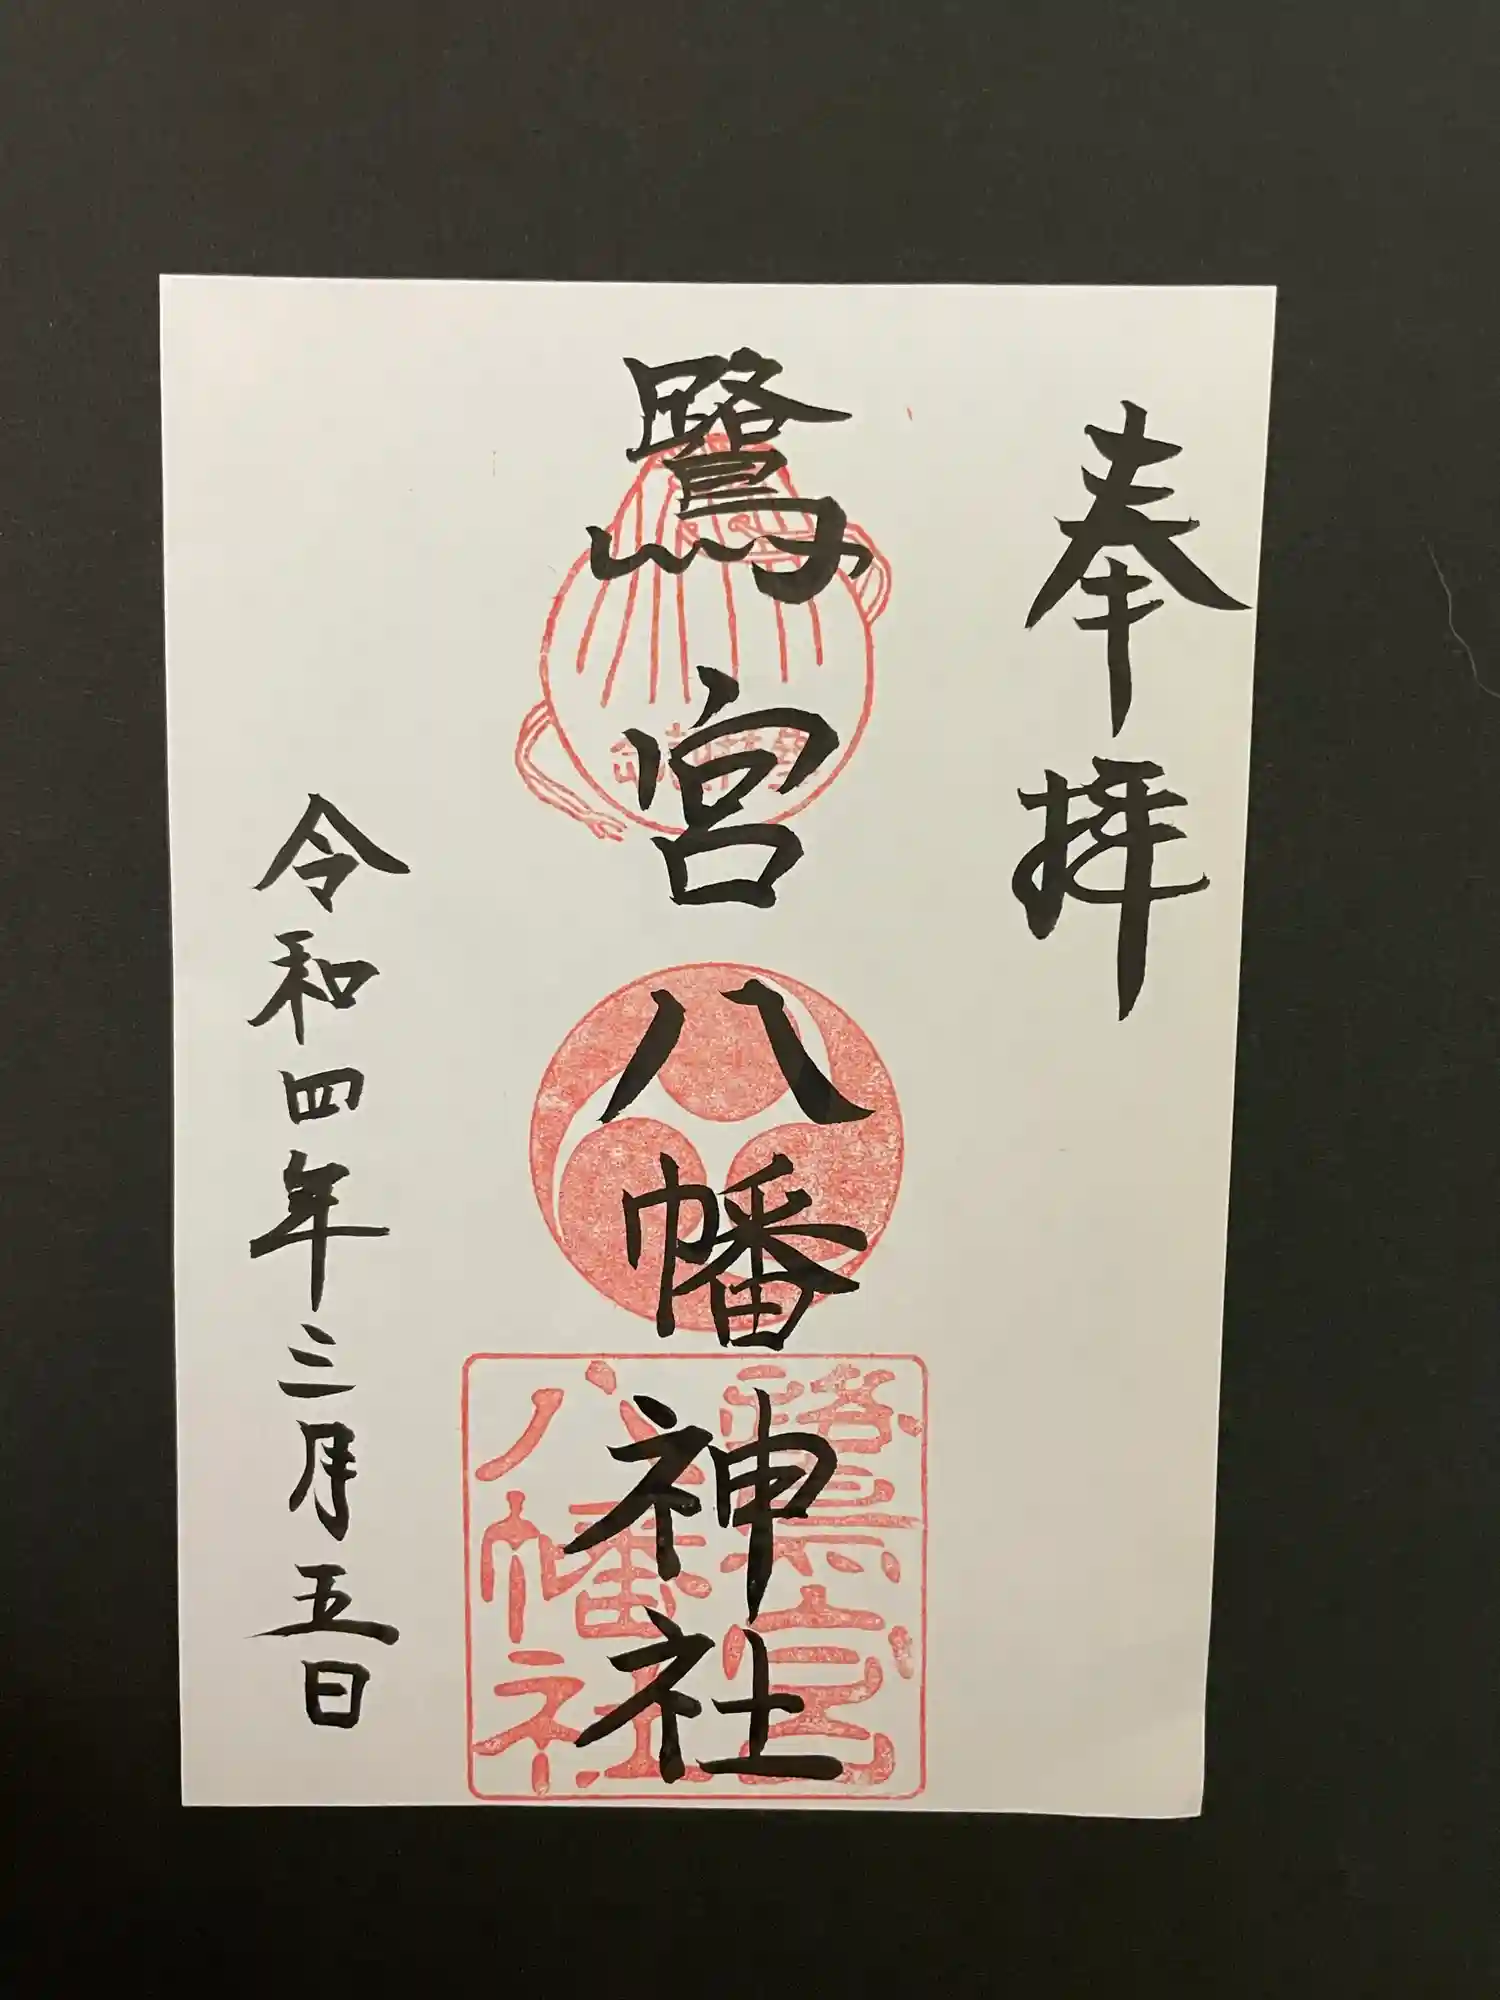 奉拝
鷺宮八幡神社
鷺宮
八幡社
令和四年三月五日